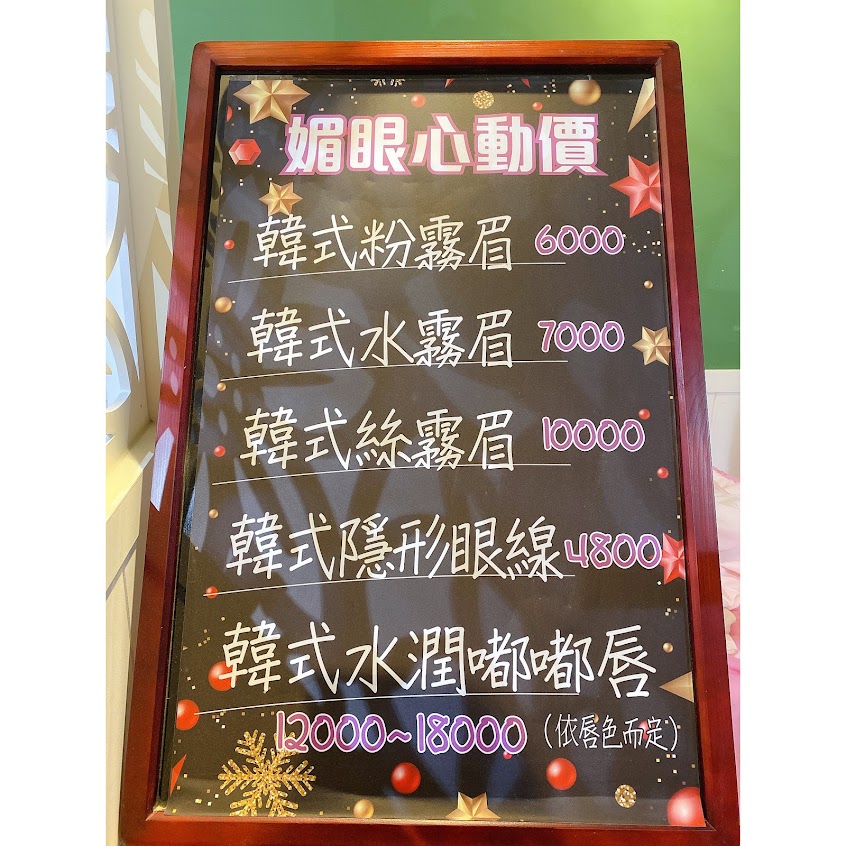 媚眼心動價
韓式粉霧眉 6000
韓式水霧眉 7000
韓式絲霧眉 10000
韓式隱形眼線 4800
韓式水潤嘟嘟唇
12000~18000 (依唇色而定)